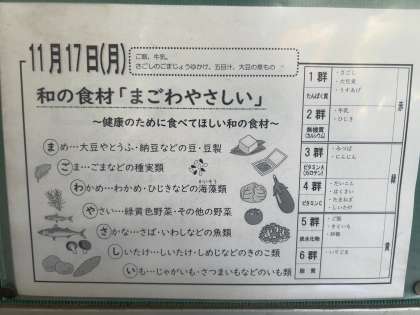 11月17日(月)
ご飯、牛乳、
さごしのごまじょうゆかけ、五目汁、大豆の煮もの
和の食材「まごわやさしい」
～健康のために食べてほしい和の食材～
まめ…大豆やとうふ・納豆などの豆・豆製
ごま…ごまなどの種実類
かいそう
わかめ…わかめ・ひじきなどの海藻類
やさい…緑黄色野菜・その他の野菜
さかな…さば・いわしなどの魚類
しいたけ…しいたけ・しめじなどのきのこ類
いも…じゃがいも・さつまいもなどのいも類
1群
たんぱく質
・さごし
・大豆
・うすあげ
2群
無機質
(カルシウム)
・牛乳
・ひじき
赤
3群
ビタミンA
(カロテン)
・みつば
・にんじん
4群
ビタミンC
・だいこん
・はくさい
・たまねぎ
・しいたけ
緑
5群
炭水化物
・ご飯
・さといも
・砂糖
6群
脂質
・いりごま
黄